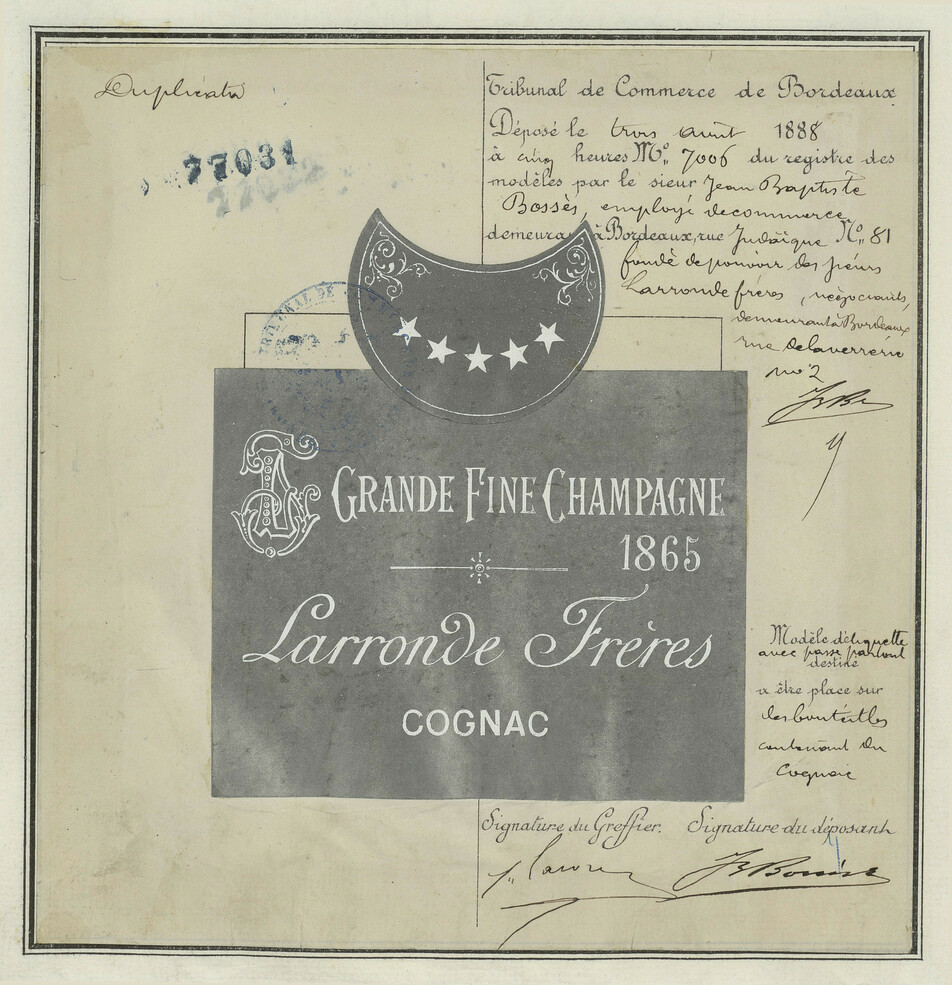 Duplicata
77031
Tribunal de Commerce de Bordeaux
Déposé le trois août 1888
à cinq heures No 7006 du registre des
modèles par le sieur Jean Baptiste
Bossès, employé de commerce
demeurant à Bordeaux, rue Judaïque No 81
fondé de pouvoir des sieurs
Larronde frères, négociants,
demeurant à Bordeaux
rue de la verrerie
no 2
TRIBUNAL DE
GRANDE FINE CHAMPAGNE
1865
Larronde Frères
COGNAC
Modèle d'étiquette
avec passe partout
destiné
a être place sur
des bouteilles
contenant du
Cognac
Signature du Greffier. Signature du déposant